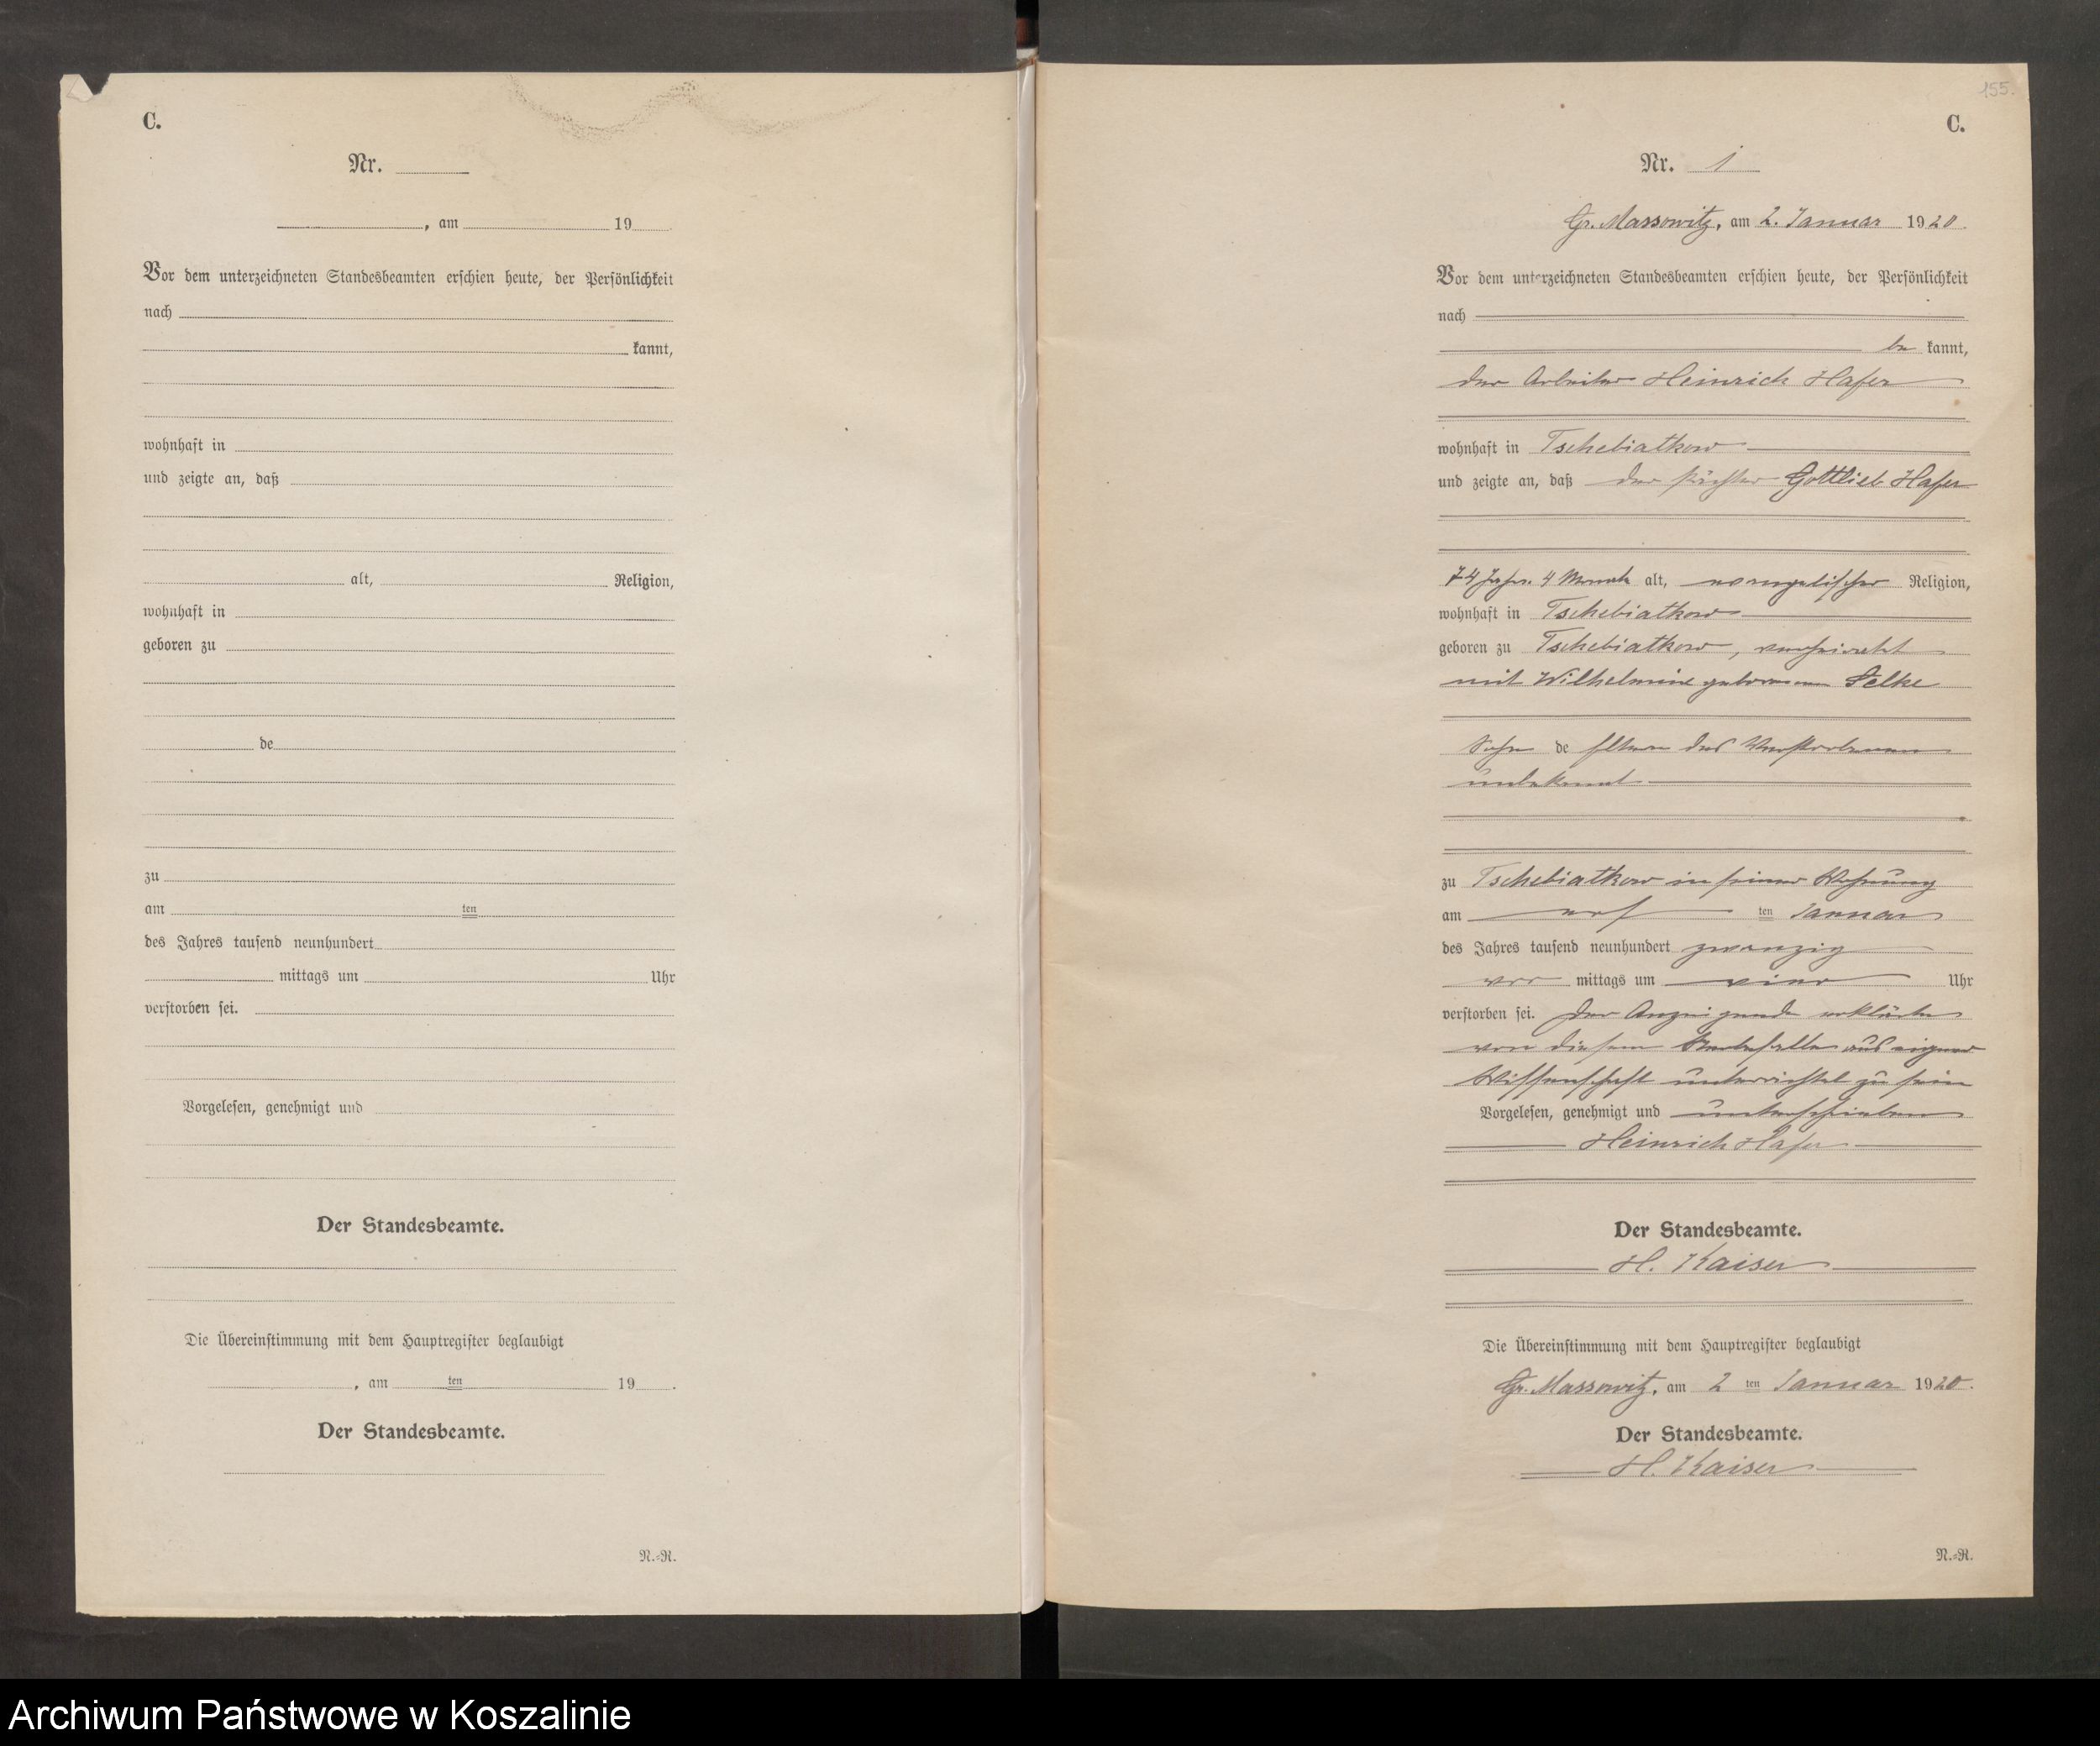 C.
Nr.
, am 19
Vor dem unterzeichneten Standesbeamten erschien heute, der Persönlichkeit
nach
kannt,
wohnhaft in
und zeigte an, daß
alt, Religion,
wohnhaft in
geboren zu
de
zu
am ten
des Jahres tausend neunhundert
mittags um Uhr
verstorben sei.
Vorgelesen, genehmigt und
Der Standesbeamte.
Die Übereinstimmung mit dem Hauptregister beglaubigt
, am ten 19 .
Der Standesbeamte.
N.=R.
155.
C.
Nr. 1
Gr. Massowitz, am 2. Januar 1920.
Vor dem unterzeichneten Standesbeamten erschien heute, der Persönlichkeit
nach
be kannt,
der Arbeiter Heinrich Hafer
wohnhaft in Tschebiatkow
und zeigte an, daß der Gottlieb Hafer
74 Jahre 4 Monate alt, evangelischer Religion,
wohnhaft in Tschebiatkow
geboren zu Tschebiatkow, verheiratet
mit Wilhelmine geborenen Selke
Sohn de Eltern des Verstorbenen
unbekannt
zu Tschebiatkow in seiner Wohnung
am ten Januar
des Jahres tausend neunhundert zwanzig
vor mittags um vier Uhr
verstorben sei. Der Anzeigende erklärte
von diesem Sterbefalle aus eigener
Wissenschaft unterrichtet zu sein
Vorgelesen, genehmigt und unterschrieben
Heinrich Hafer
Der Standesbeamte.
H. Kaiser
Die Übereinstimmung mit dem Hauptregister beglaubigt
Gr. Massowitz, am 2 ten Januar 1920.
Der Standesbeamte.
H. Kaiser
N.=R.
Archiwum Państwowe w Koszalinie